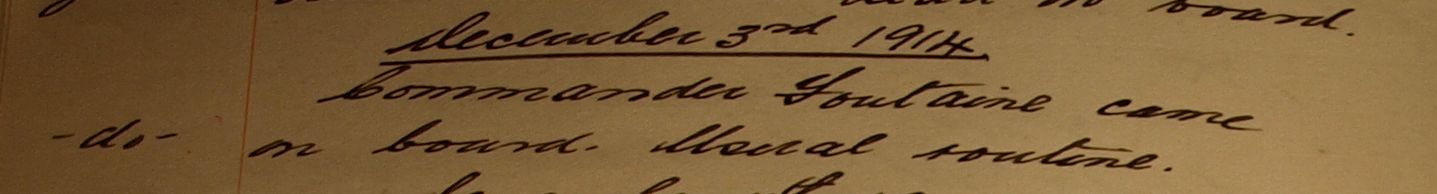 on board.
December 3rd 1914.
Commander Goutaine came
-do- on board. Usual routine.